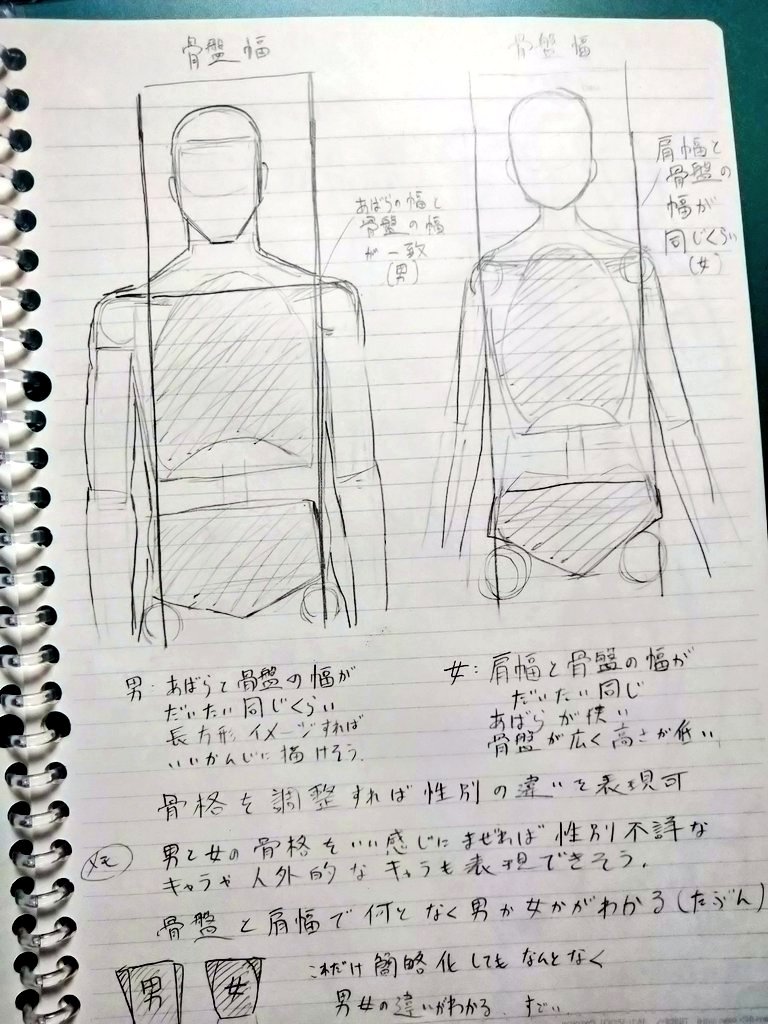 骨盤幅
骨盤幅
あばらの幅と
骨盤の幅
が一致
(男)
肩幅と
骨盤の
幅が
同じくらい
(女)
男:あばらと骨盤の幅が
だいたい同じくらい
長方形イメージすれば
いいかんじに描けそう。
女:肩幅と骨盤の幅が
だいたい同じ
あばらが狭い
骨盤が広く高さが低い
骨格を調整すれば性別の違いを表現可
メモ
男と女の骨格をいい感じにまぜれば性別不詳な
キャラや人外的なキャラも表現できそう。
骨盤と肩幅で何となく男か女かがわかる(たぶん)
男
女
これだけ簡略化してもなんとなく
男女の違いがわかる。すごい。